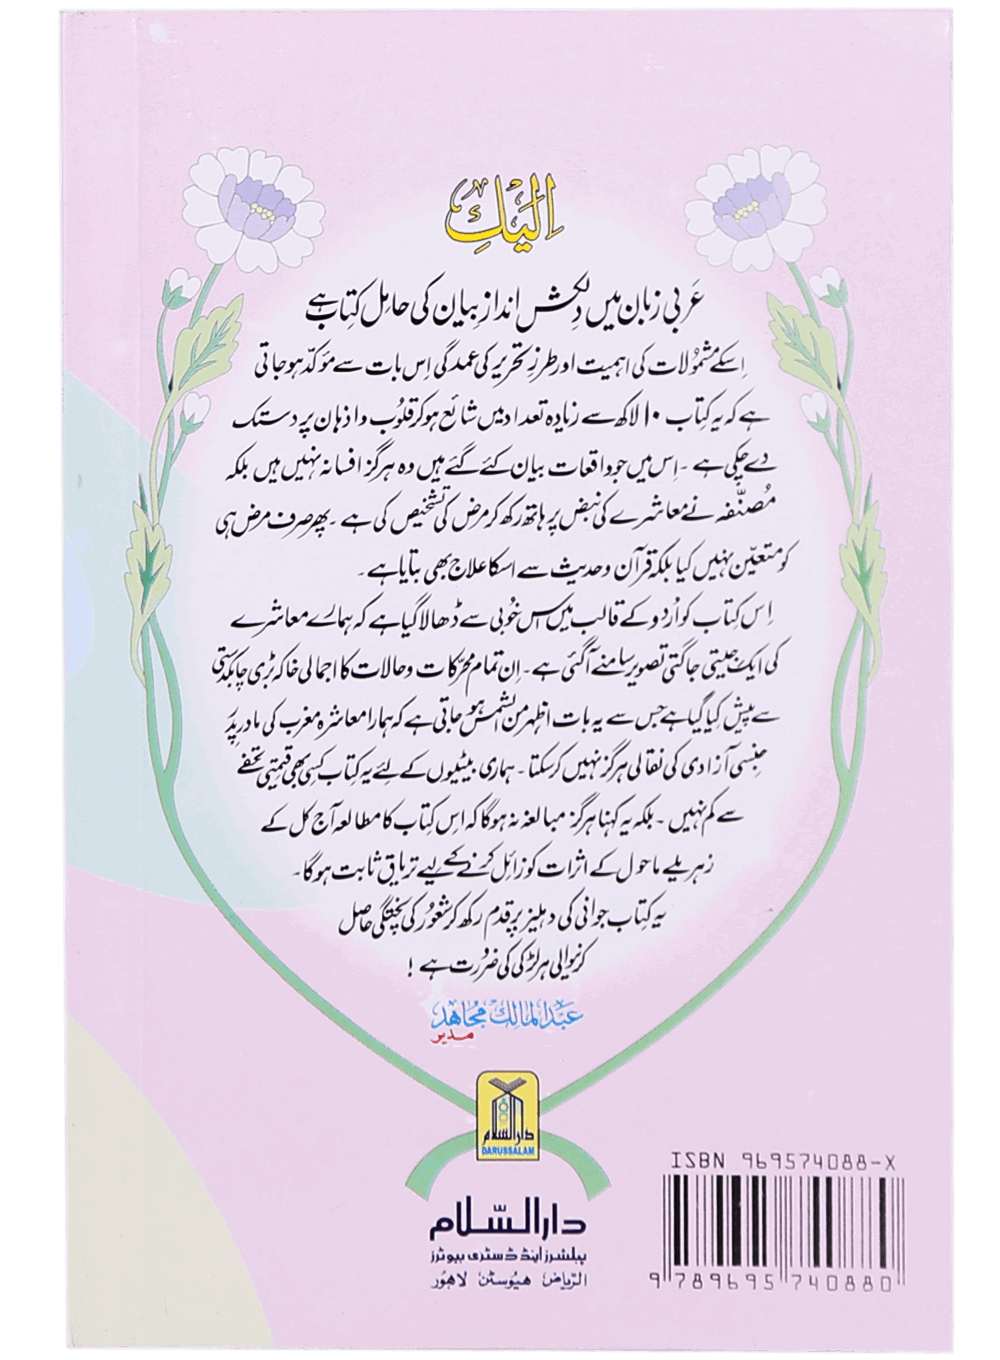 اِلَيكِ
عَربی زبان میں دِلکش اندازِ بیان کی حامل کتاب ہے
اِسکے مشمُولات کی اہمیت اور طرزِ تحریر کی عمدگی اِس بات سے مؤکد ہو جاتی
ہے کہ یہ کتاب ۱۰ لاکھ سے زیادہ تعداد میں شائع ہو کر قلوُب و اذہان پر دستک
دے چکی ہے ۔ اِس میں جو واقعات بیان کئے گئے ہیں وہ ہرگز افسانہ نہیں ہیں بلکہ
مُصنّفہ نے معاشرے کی نبض پر ہاتھ رکھ کر مرض کی تشخیص کی ہے ۔ پھر صرف مرض ہی
کو متعیّن نہیں کیا بلکہ قرآن و حدیث سے اسکا علاج بھی بتایا ہے ۔
اِس کتاب کو اُردو کے قالب میں اس خُوبی سے ڈھالا گیا ہے کہ ہمارے معاشرے
کی ایک جیتی جاگتی تصویر سامنے آگئی ہے ۔ اِن تمام محرّکات و حالات کا اجمالی خاکہ بڑی چابکدستی
سے پیش کیا گیا ہے جس سے یہ بات اظہر من الشمس ہو جاتی ہے کہ ہمارا معاشرہ مغرب کی مادر پِدَر
جنسی آزادی کی نقالی ہرگز نہیں کر سکتا ۔ ہماری بیٹیوں کے لئے یہ کتاب کسی بھی قیمتی تحفے
سے کم نہیں ۔ بلکہ یہ کہنا ہرگز مبالغہ نہ ہو گا کہ اس کتاب کا مطالعہ آج کل کے
زہریلے ماحول کے اثرات کو زائل کرنے کے لیے تریاق ثابت ہو گا ۔
یہ کتاب جوانی کی دہلیز پر قدم رکھ کر شعُور کی پختگی حاصل
کرنیوالی ہر لڑکی کی ضرُورت ہے !
عَبدالمالِک مُجاہد
مدیر
دارالسلام
DARUSSALAM
دارالسّلام
پبلشرز اینڈ ڈسٹری بیوٹرز
الرّیاض ھیوسٹن لاھور
ISBN 969574088-X
9 789695 740880